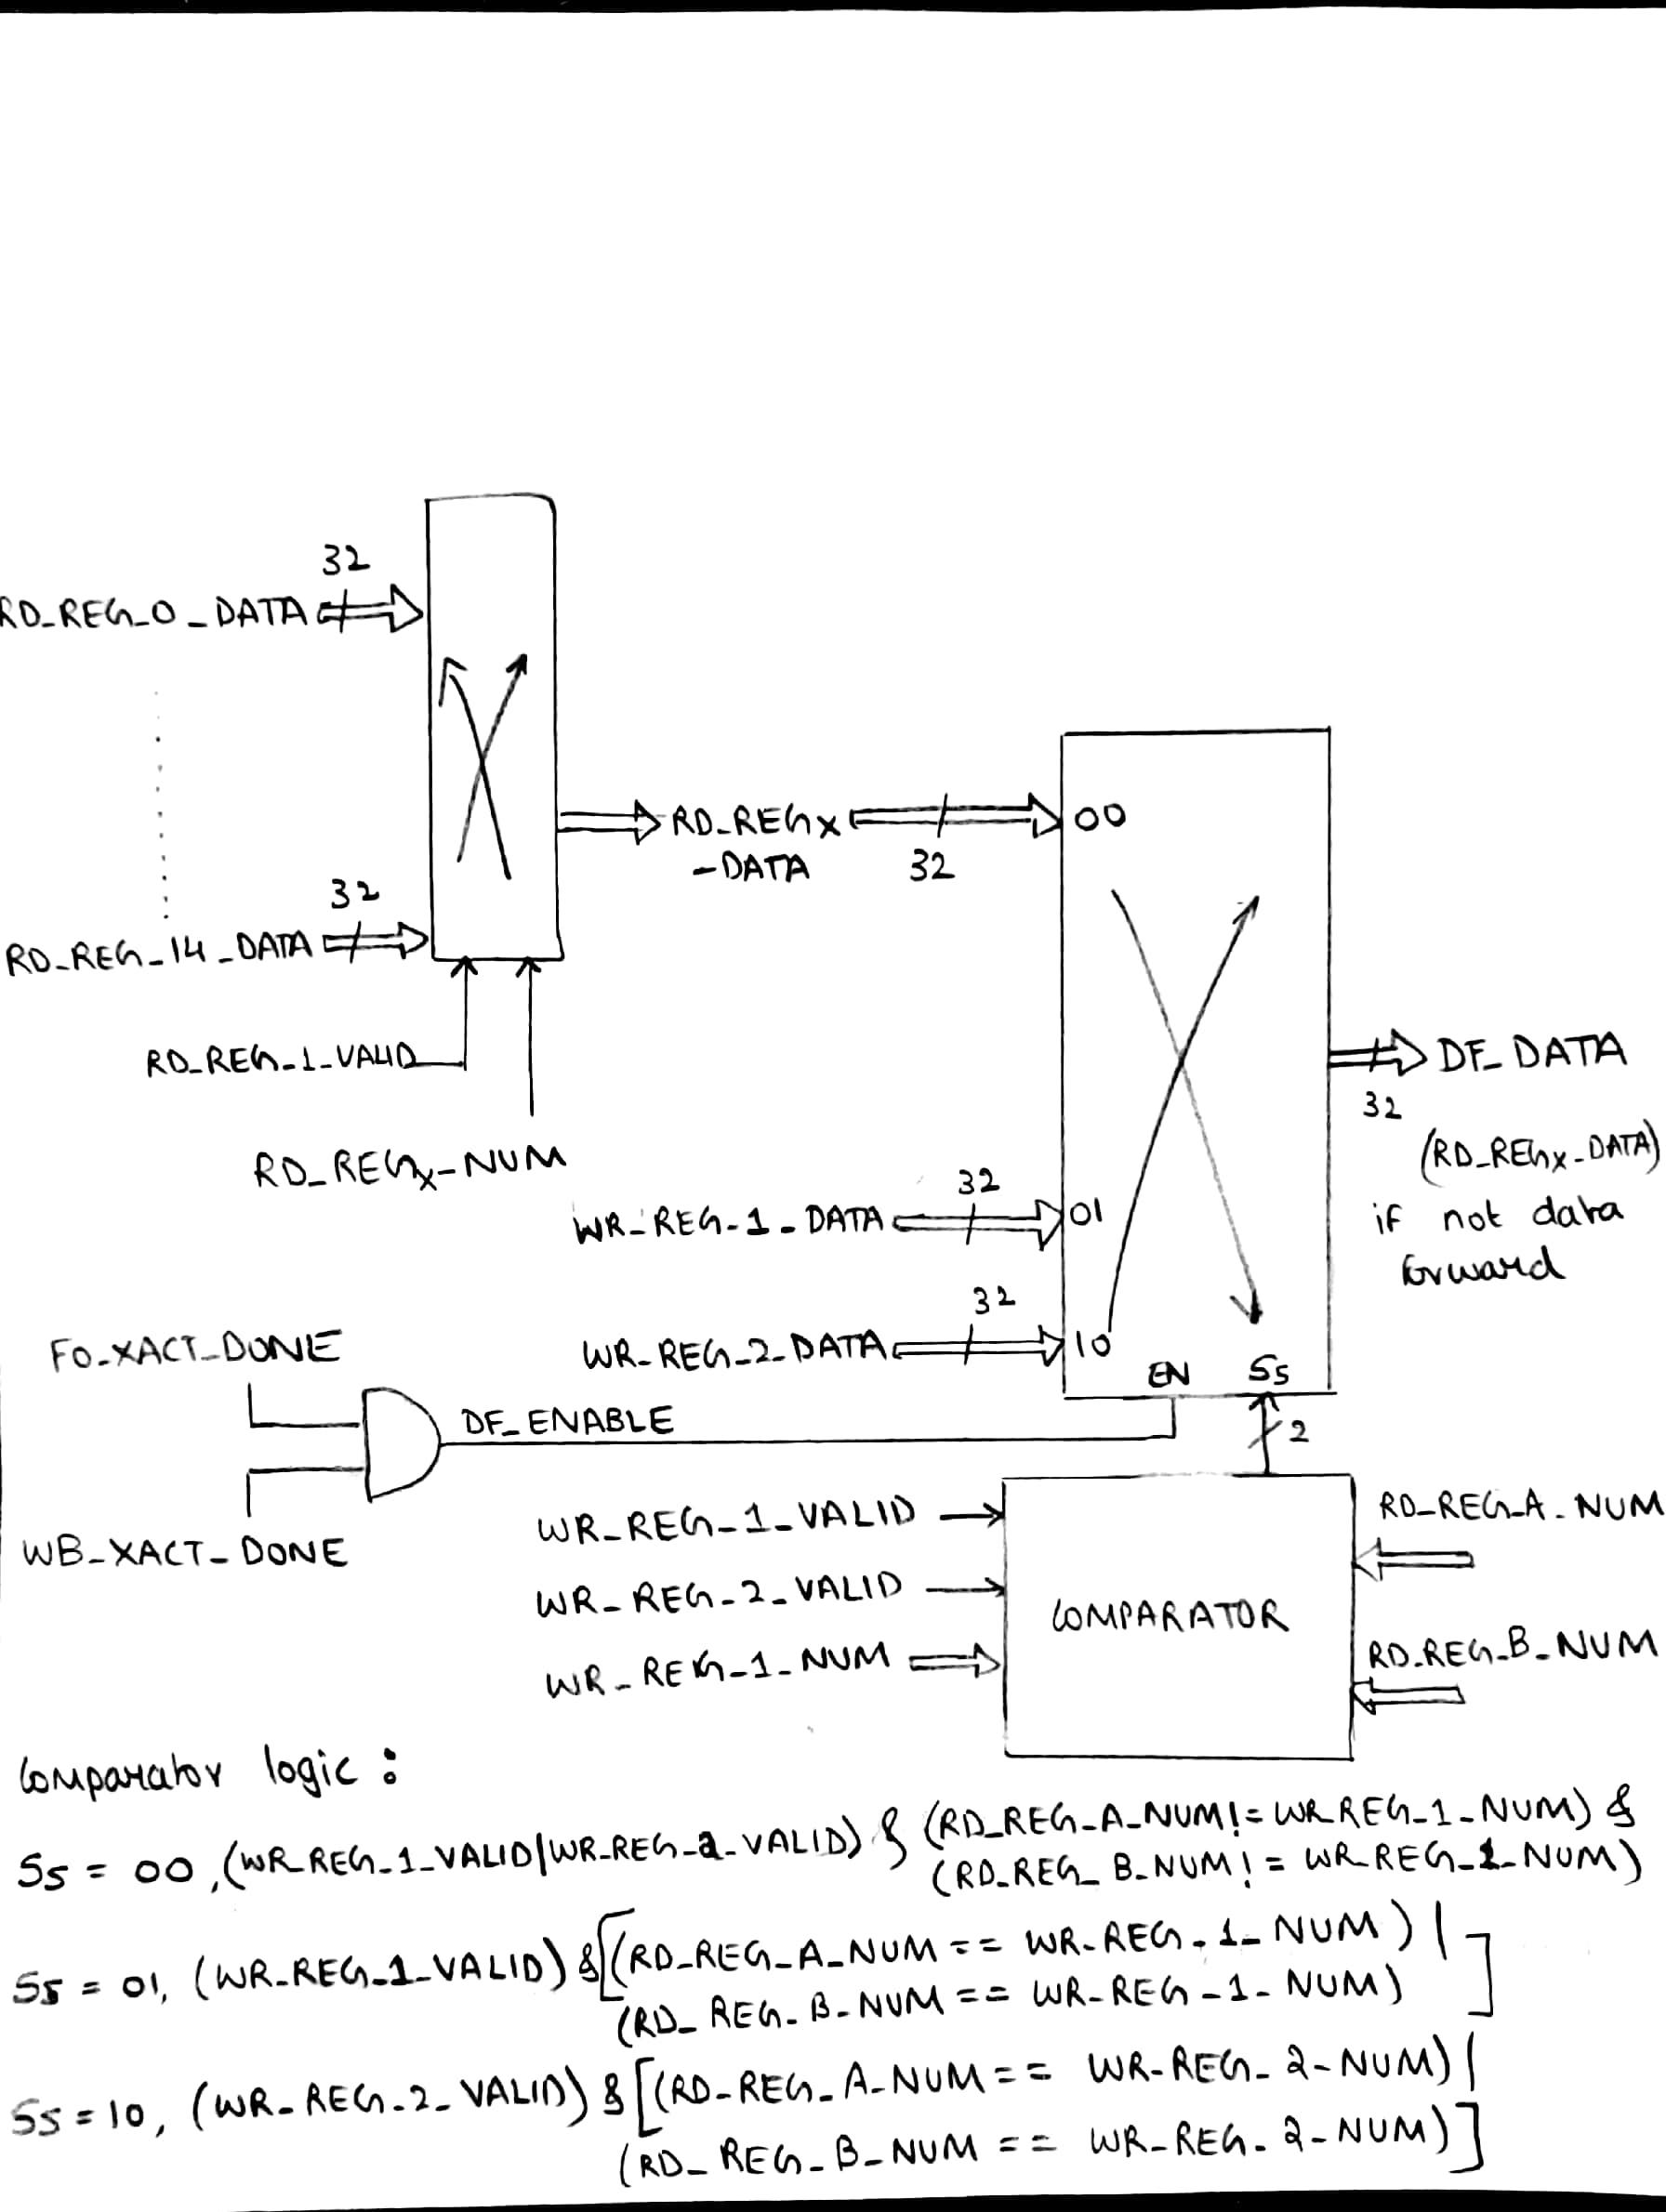 32
RD_REG_0_DATA
32
RD_REG_14_DATA
RD_REG_1_VALID
RD_REGx_NUM
RD_REGx
_DATA
32
00
WR_REG_1_DATA
32
01
WR_REG_2_DATA
32
10
EN
S5
2
DF_DATA
32
(RD_REGx_DATA)
if not data
forward
FO_XACT_DONE
DF_ENABLE
WB_XACT_DONE
WR_REG_1_VALID
WR_REG_2_VALID
WR_REG_1_NUM
COMPARATOR
RD_REG_A_NUM
RD_REG_B_NUM
Comparator logic :
S5 = 00, (WR_REG_1_VALID|WR_REG_2_VALID) & (RD_REG_A_NUM != WR_REG_1_NUM) &
(RD_REG_B_NUM != WR_REG_1_NUM)
S5 = 01, (WR_REG_1_VALID) & [(RD_REG_A_NUM == WR_REG_1_NUM) |
(RD_REG_B_NUM == WR_REG_1_NUM)]
S5 = 10, (WR_REG_2_VALID) & [(RD_REG_A_NUM == WR_REG_2_NUM) |
(RD_REG_B_NUM == WR_REG_2_NUM)]